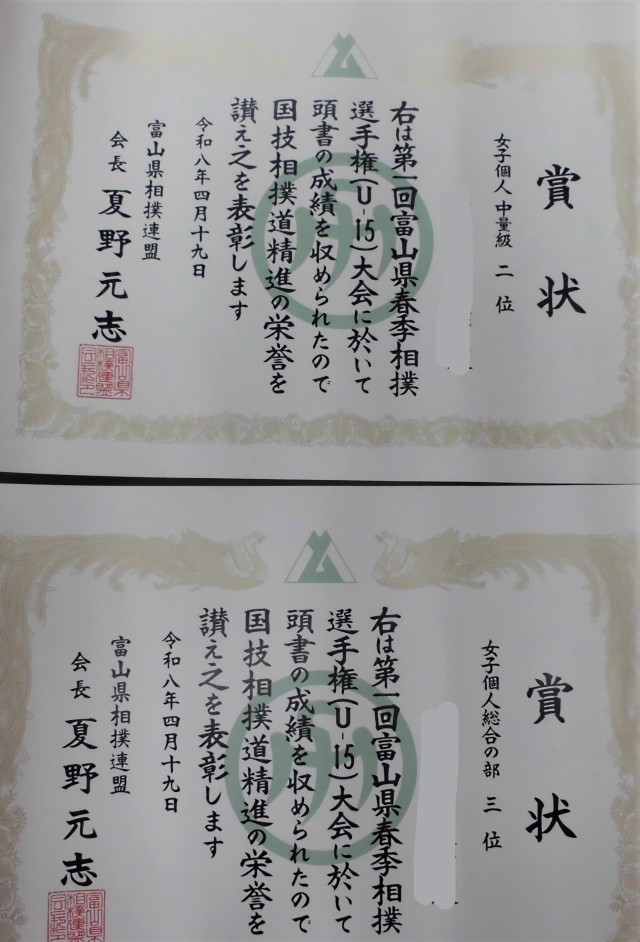 賞状
女子個人 中量級 二位
右は第一回富山県春季相撲
選手権(U-15)大会に於いて
頭書の成績を収められたので
国技相撲道精進の栄誉を
讃え之を表彰します
令和八年四月十九日
富山県相撲連盟
会長 夏野元志
賞状
女子個人総合の部 三位
右は第一回富山県春季相撲
選手権(U-15)大会に於いて
頭書の成績を収められたので
国技相撲道精進の栄誉を
讃え之を表彰します
令和八年四月十九日
富山県相撲連盟
会長 夏野元志